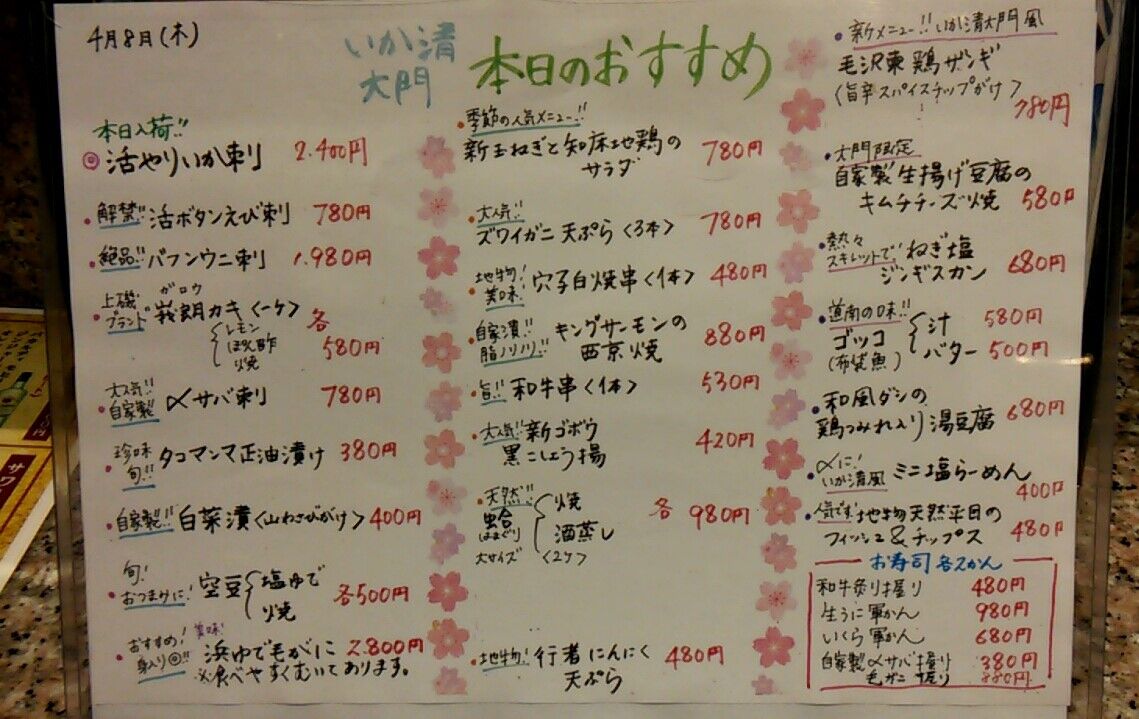 4月8日(木)
いか清
大門
本日のおすすめ
本日入荷!!
◎活やりいか刺 2.400円
・解禁!! 活ボタンえび刺 780円
・絶品!! バフンウニ刺 1.980円
・上磯ブランド 峩朗カキ〈一ケ〉 各580円
ガロウ
レモン
ぽん酢
焼
・大人気!! 自家製 〆サバ刺 780円
・珍味 旬!! タコマンマ正油漬け 380円
・自家製!! 白菜漬〈山わさびがけ〉 400円
・旬! おつまみに! 空豆 塩ゆで 各500円
焼
・おすすめ! 身入り◎!! 美味 浜ゆで毛がに 2.800円
※食べやすくむいております。
・季節の人気メニュー!!
新玉ねぎと知床地鶏の
サラダ 780円
・大人気!!
ズワイガニ天ぷら〈3本〉 780円
・地物! 美味! 穴子白焼串〈1本〉 480円
・自家漬!! 脂ノリノリ!! キングサーモンの
西京焼 880円
・旨!! 和牛串〈1本〉 530円
・大人気!! 新ゴボウ
黒こしょう揚 420円
・天然!! 焼
蛤 はまぐり 酒蒸し 各980円
大サイズ 〈2ケ〉
・地物! 行者にんにく
天ぷら 480円
・新メニュー!! いか清大門風
毛沢東鶏ザンギ
〈旨辛スパイスチップがけ〉 780円
・大門限定
自家製生揚げ豆腐の
キムチチーズ焼 580円
・熱々 スキレットで! ねぎ塩
ジンギスカン 680円
・道南の味!!
ゴッコ 汁 580円
(布袋魚) バター 500円
・和風ダシの
鶏つみれ入り湯豆腐 680円
・〆に! いか清風 ミニ塩らーめん
400円
・人気です! 地物天然平目の
フィッシュ&チップス 480円
お寿司 各2かん
和牛炙り握り 480円
生うに軍かん 980円
いくら軍かん 680円
自家製〆サバ握り 380円
毛ガニ握り 880円